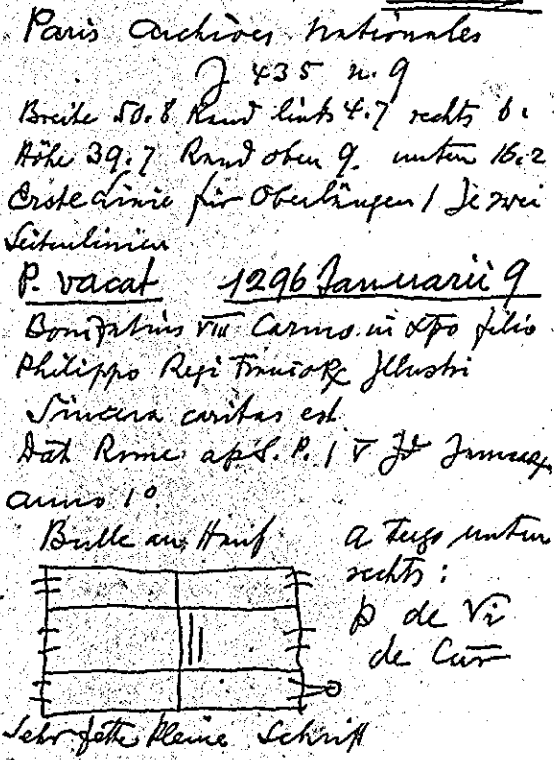 Paris Archives Nationales
J 435 n. 9
Breite 50.8 Rand links 4.7 rechts 6.
Höhe 39.7 Rand oben 9. unten 16.2
Erste Linie für Oberlängen / Je zwei
Seitenlinien
P. vacat 1296 Januarii 9
Bonifatius VIII Carmo. in xpo filio
Philippo Regi Francorꝝ Illustri
Sincera caritas est
Dat Rome ap. S. P. / V Id Januarꝝ
anno 1º
Bulle an Hanf
A tergo unten
rechts:
p de Vi
de Cur
Sehr fette kleine Schrift